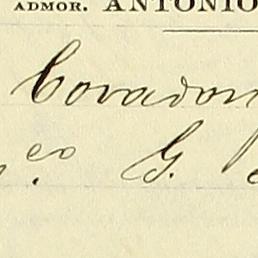 ADMOR. ANTONIO
Covadon
co. G.